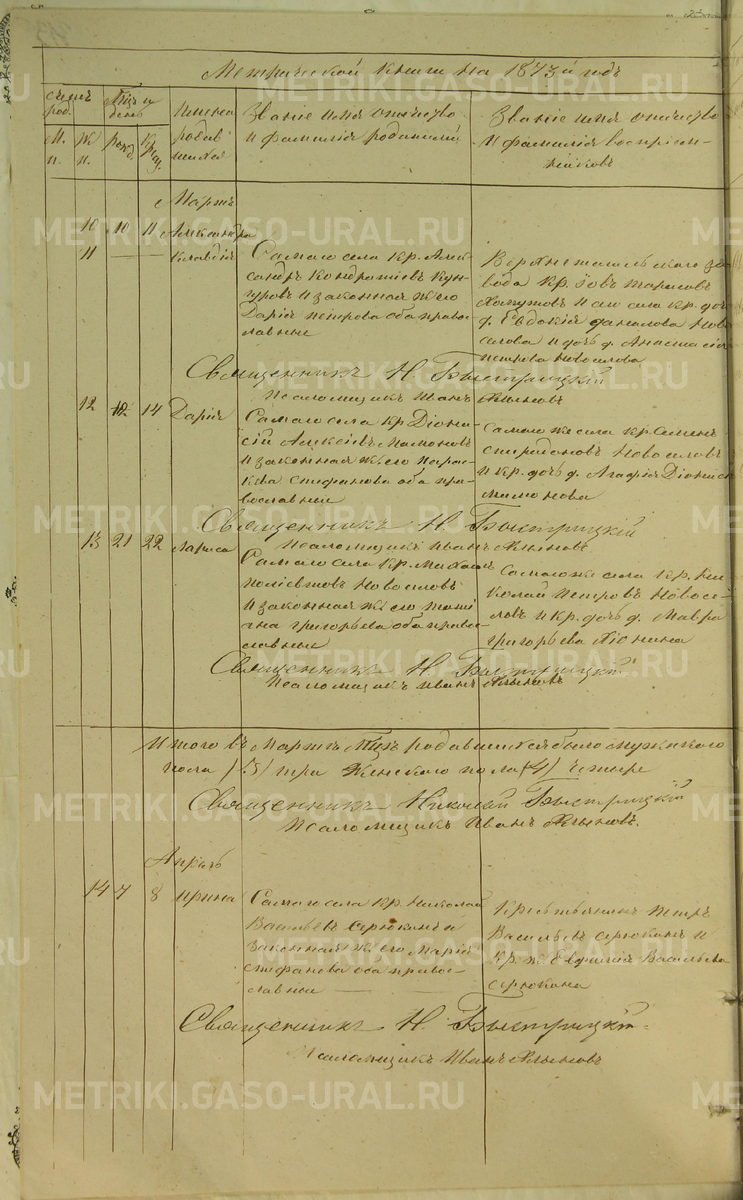 Метрической книги на 1873й годъ
Счетъ род.
Мцъ и день
Имена родив шихся
Званiе имя отчество и фамилiя родителей
Званiе имя отчество и фамилiя воспрiем- никовъ
М. п.
Ж. п.
рожд.
Крещ.
Мартъ
10 10 11 Александра
11 — — Клавдiя
Самаго села кр. Алек-
сандръ Кондратiевъ Кун-
гуровъ и законная ж его
Дарiя Петрова оба право-
славные
Верхнетагильскаго за-
вода кр. Iовъ Тарасовъ
и сего села кр. дочь
д. Евдокiя Данилова Ново-
селова и дочь д. Анастасiя
Петрова Новоселова
Священникъ Н. Быстрицкiй
Псаломщикъ Иванъ
12 12 14 Дарiя
Самаго села кр Дiони-
сiй Алексiевъ Мамоновъ
и законная ж его Парас-
кева Стефанова оба пра-
вославные
Самаго же села кр. Семенъ
Спиридоновъ Новоселовъ
и кр. дочь д. Агафiя Дiонис
Мамонова
Священникъ Н. Быстрицкiй
Псаломщикъ Иванъ
13 21 22 Лариса
Самаго села кр. Михаилъ
Новоселовъ
и законная ж его Татi-
ана Григорьева оба право-
славные
Самаго же села кр. Ни-
колай Петровъ Новосе-
ловъ и кр. дочь д. Мавра
Григорьева
Священникъ Н. Быстрицкiй
Псаломщикъ Иванъ
Итого въ Мартѣ мцѣ родившихся было мужескаго
пола (3) три Женскаго пола (4) четыре
Священникъ Николай Быстрицкiй
Псаломщикъ Иванъ
Апрѣль
14 7 8 Ирина
Самаго села кр. Николай
Васильевъ Серюкинъ и
законная ж его Марiя
Стефанова оба право-
славные
Крестьянинъ Петръ
Васильевъ Серюкинъ и
кр. ж. Евфимiя Васильева
Серюкина
Священникъ Н. Быстрицкiй
Псаломщикъ Иванъ
METRIKI.GASO-URAL.RU